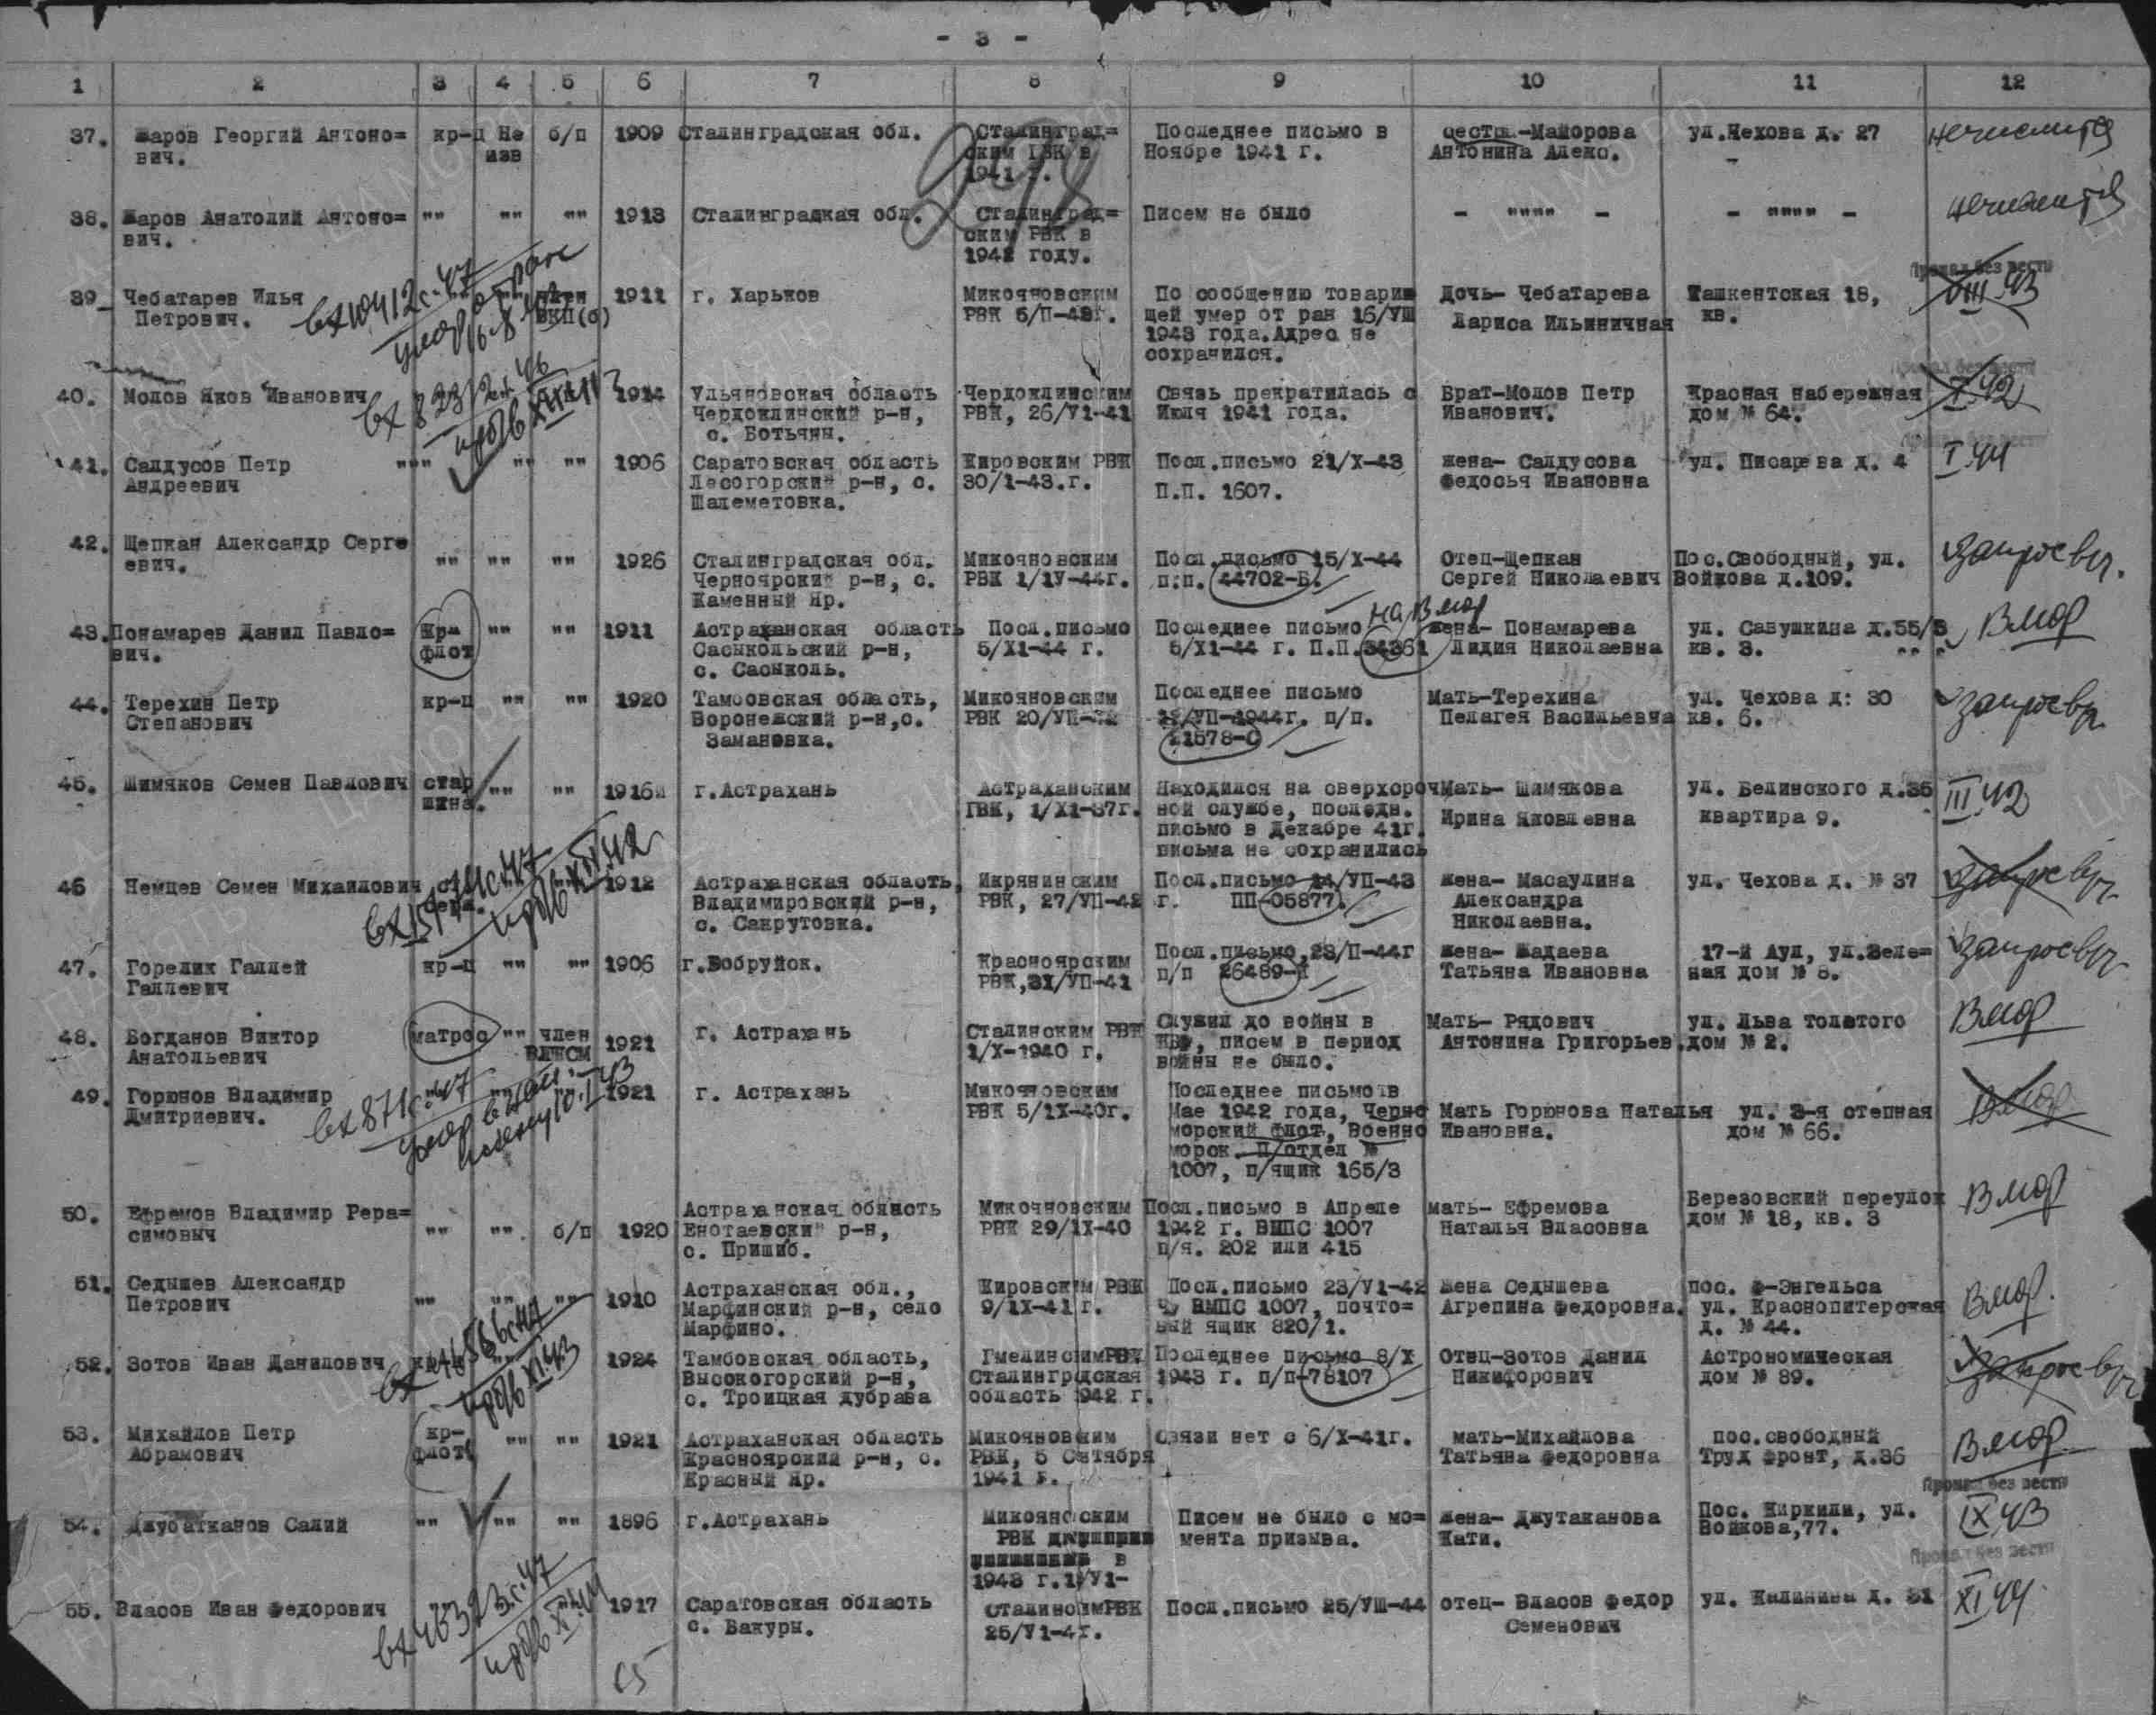 - 3 -
1 2 3 4 5 6 7 8 9 10 11 12
37. Жаров Георгий Антоно= кр-ц Не б/п 1909 Сталинградская обл. Сталинград= Последнее письмо в сестра-Майорова ул.Чехова д. 27 не числится
вич. изв ским ГВК в Ноябре 1941 г. Антонина Алекс.
1941 г.
298
38. Жаров Анатолий Антоно= "" "" "" 1913 Сталинградкая обл. Сталинград= Писем не было - """" - - """" - не числится
вич. ским РВК в
1942 году.
39 Чебатарев Илья "" член 1911 г. Харьков Микояновским По сообщению товарищ Дочь- Чебатарева Ташкентская 18, Пропал без вести
Петрович. ВКП(б) РВК 5/П-42г. щей умер от ран 16/УШ Лариса Ильиничная кв. VIII.43
1943 года.Адрес не
сохранился.
вх 10412с-47
умер от ран
16-8-43
40. Молов Яков Иванович 1914 Ульяновская область Чердоклинским Связь прекратилась с Брат-Молов Петр Красная набережная X.42
Чердоклинский р-н, РВК, 26/У1-41 Июля 1941 года. Иванович. дом № 64.
с. Ботьяны.
41. Салдусов Петр """ "" "" 1906 Саратовская область Кировским РВК Посл.письмо 21/Х-43 жена- Салдусова ул. Писарева д. 4 I.44
Андреевич Лесогорский р-н, с. 30/1-43.г. П.П. 1607. Федосья Ивановна
Шалеметовка.
42. Щепкан Александр Серге "" "" "" 1926 Сталинградская обл. Микояновским Посл.письмо 15/Х-44 Отец-Щепкан Пос.Свободный, ул. запрос вч.
евич. Черноярский р-н, с. РВК 1/1У-44г. п.п. 44702-Б. Сергей Николаевич Войкова д.109.
Каменный Яр.
на В мор
43. Понамарев Данил Павло= Кр- "" "" 1911 Астраханская область Посл.письмо Последнее письмо жена- Понамарева ул. Савушкина д.55/3 Вмор
вич. флот Сасыкольский р-н, 5/Х1-44 г. 5/Х1-44 г. П.П.34361 Лидия Николаевна кв. 3.
с. Сасыколь.
44. Терехин Петр кр-ц "" "" 1920 Тамбовская область, Микояновским Последнее письмо Мать-Терехина ул. Чехова д: 30 запрос вч.
Степанович Воронежский р-н,с. РВК /УП-1944г. п/п. Пелагея Васильевна кв. 6.
Замановка. 21578-С
45. Шимяков Семен Павлович стар "" "" 1916 г.Астрахань Астраханским Находился на сверхсроч Мать- Шимякова ул. Белинского д.35 III.42
шина. ГВК, 1/Х1-37г. ной службе, последн. Ирина Яковлевна квартира 9.
письмо в Декабре 41г.
письма не сохранились
46 Немцев Семен Михаилович 1912 Астраханская область, Икрянинским Посл.письмо 14/УП-43 жена- Масаулина ул. Чехова д. № 37 запрос вч.
Владимировский р-н, РВК, 27/УП-42 г. ПП-05877. Александра
с. Сакрутовка. Николаевна.
47. Горелик Галлей кр-ц "" "" 1906 г.Бобруйск. Красноярским Посл.письмо,23/П-44г жена- Жадаева 17-й Аул, ул.Зеле= запрос вч
Галлевич РВК,31/УП-41 п/п 26489- Татьяна Ивановна ная дом № 8.
48. Богданов Виктор матрос "" член 1921 г. Астрахань Сталинским РВК Служил до войны в Мать- Рядович ул. Льва толстого Вмор
Анатольевич ВЛКСМ 1/Х-1940 г. , писем в период Антонина Григорьев. дом № 2.
войны не было.
49. Горюнов Владимир "" "" 1921 г. Астрахань Микояновским Последнее письмо в Мать Горюнова Наталья ул. 3-я степная Вмор
Дмитриевич. РВК 5/1Х-40г. Мае 1942 года, Черно Ивановна. дом № 66.
морский флот, Военно
морск. П/отдел №
1007, п/ящик 165/3
вх 871с-47
50. Ефремов Владимир Рера= "" "" б/п 1920 Астраханская область Микояновским Посл.письмо в Апреле мать- Ефремова Березовский переулок Вмор
симовыч Енотаевский р-н, РВК 29/1Х-40 1942 г. ВМПС 1007 Наталья Власовна дом № 18, кв. 3
с. Пришиб. п/я. 202 или 415
51. Седышев Александр "" "" "" 1910 Астраханская обл., Кировским РВК Посл.письмо 23/У1-42 жена Седышева пос. Ф-Энгельса Вмор.
Петрович Марфинский р-н, село 9/1Х-41 г. ВМПС 1007, почто= Агрепина Федоровна. ул. Краснопитерская
Марфино. вый ящик 820/1. д. № 44.
52. Зотов Иван Данилович 1924 Тамбовская область, Гмелинским РВК Последнее письмо 8/Х Отец-Зотов Данил Астрономическая запрос вч
Высокогорский р-н, Сталинградская 1943 г. п/п-78107 Никифорович дом № 89.
с. Троицкая дубрава область 1942 г.
53. Михайлов Петр кр- "" "" 1921 Астраханская область Микояновким Связи нет с 6/Х-41г. мать-Михайлова пос.свободный Вмор
Абрамович флот Красноярский р-н, с. РВК, 5 Октября Татьяна Федоровна Труд фронт, д.36
Красный Яр. 1941 г.
54. Джубатканов Салий "" "" "" 1896 г.Астрахань Микояновским Писем не было с мо= жена- Джутаканова Пос. Киркили, ул. Пропал без вести
РВК в мента призыва. Кати. Войкова,77. IX.43
1943 г.1/У1-
55. Власов Иван Федорович 1917 Саратовская область СталинскимРВК Посл.письмо 25/УШ-44 отец- Власов Федор ул. Калинина д. 31 Пропал без вести
с. Бакуры. 25/У1-4г. Семенович XI.44
вх 46323.с.47